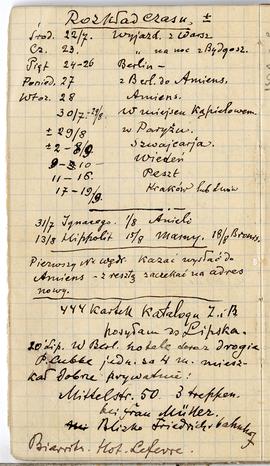 Rozkład czasu, ±
Środ. 22/7. Wyjazd z Warsz
Cz. 23. " na noc z Bydgosz.
Piąt 24-26 Berlin-
Poned. 27 z Berl. do Amiens.
Wtor. 28 Amiens.
30/7.-29/8 W miejscu kąpielowem.
± 29/8 w Paryżu.
± 2-8/9 Szwajcarja
9-10- Wiedeń
11-16. Peszt
17-19/9. Kraków lub Lwów
31/7 Ignacego 1/8 Anieli
13/8 Hippolit 15/8 Mamy. 18/8 Bronis.
Pierwszy kazać wysłać do
Amiens - z resztą zaczekać na adres
nowy.
444 kartek katalogu I. i B
posyłam do Lipska.
20 Lip. W Berl. hotele teraz drogie
P. Lubke jedn. za 4 m. miesz-
kał dobrze prywatnie:
Mittelstr. 50. 3 treppen.
bei Frau Müller.
Blisko Friedrichsbahnhof
Biarritz. Hot. Lefevre.